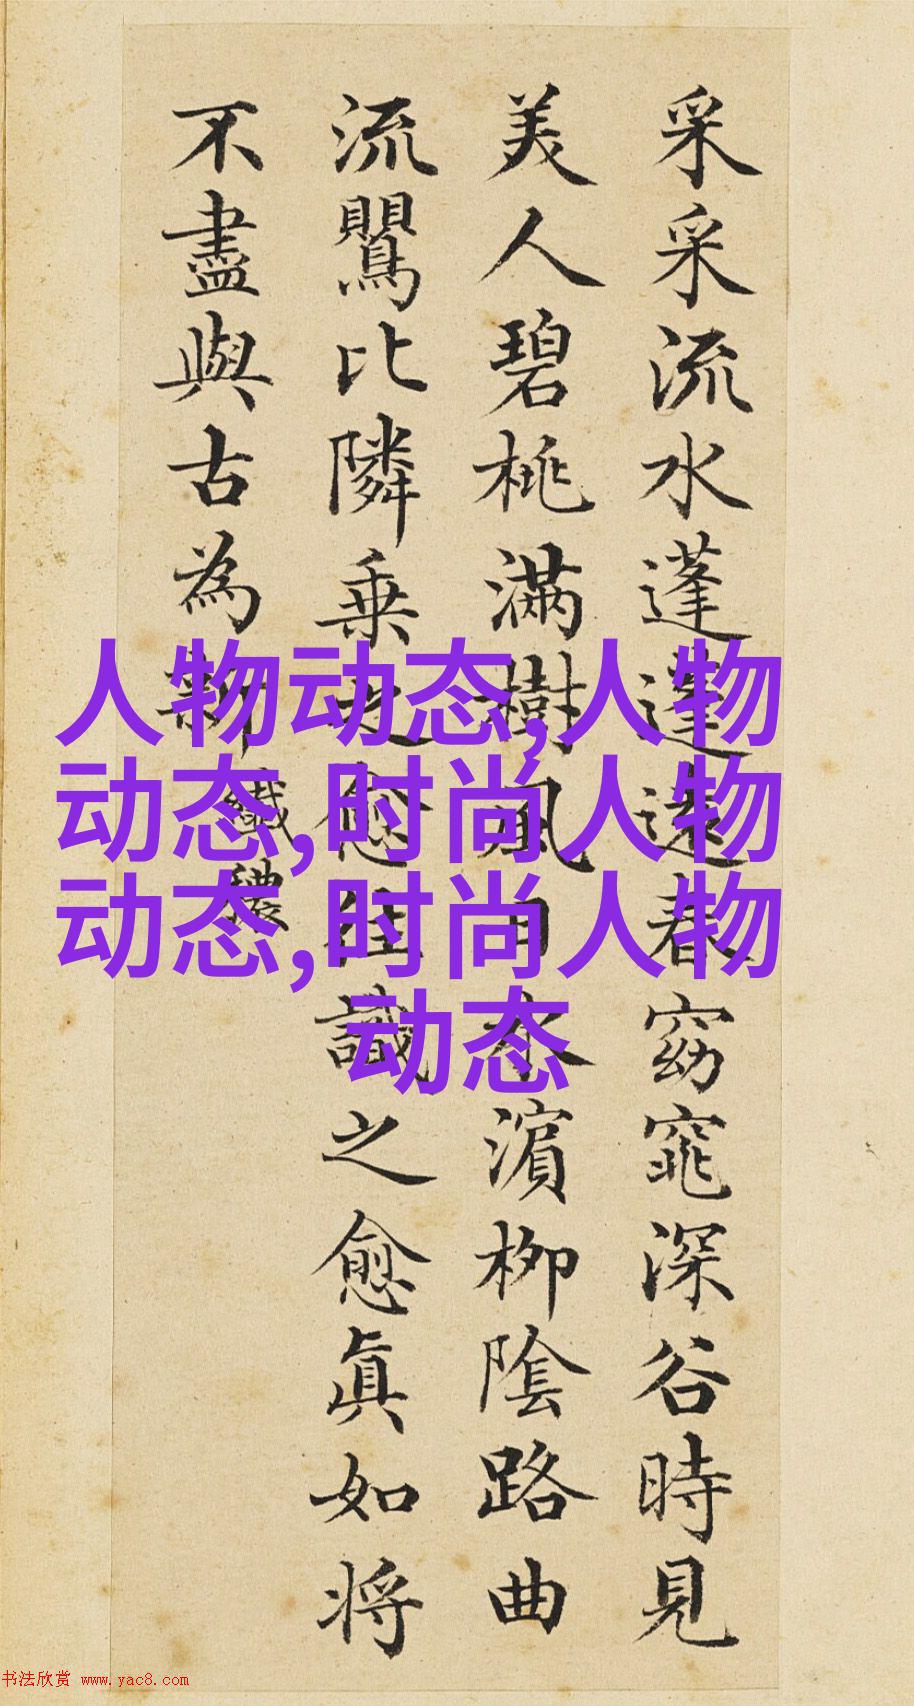 采采流水蓬蓬遠春窈窕深谷時見
美人碧桃滿樹風日水濱柳陰路曲
流鸎比隣乗之愈往識之愈眞如将
不盡與古為新
纖穠
人物动态,人物
动态,时尚人物
动态,时尚人物
动态
书法欣赏 www.yac8.com